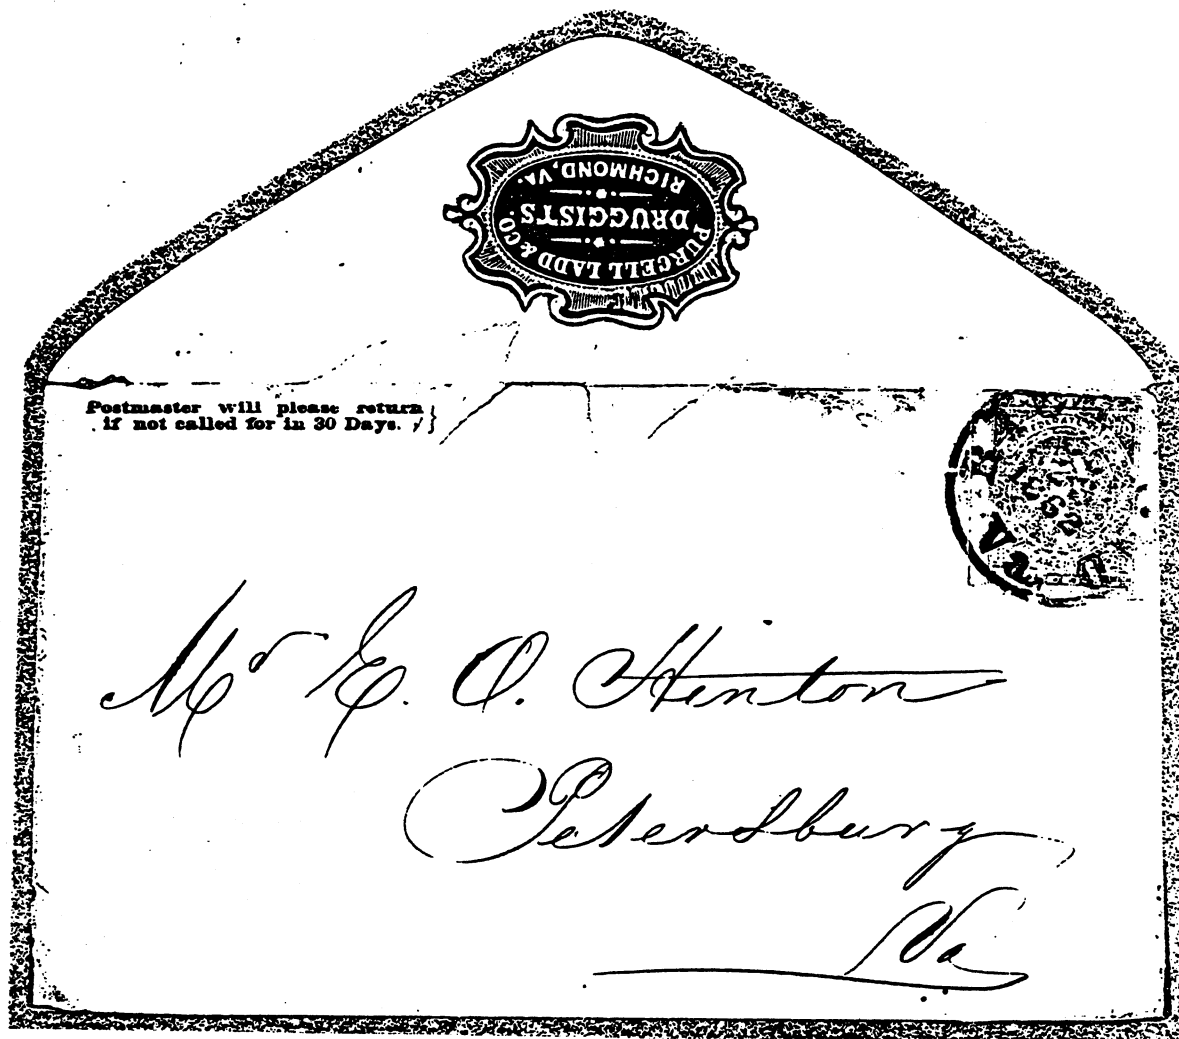 PURCELL LADD & CO.
DRUGGISTS
RICHMOND, VA.
Postmaster will please return
if not called for in 30 Days.
Va
1862
Mr E. O. Hinton
Petersburg
Va